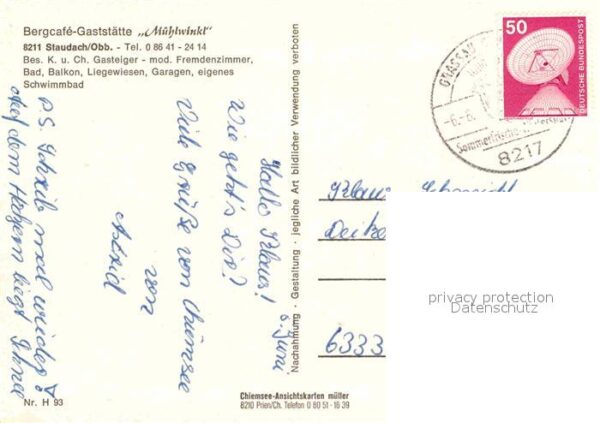 Bergcafé-Gaststätte „Mühlwinkl"
8211 Staudach/Obb. - Tel. 0 86 41 - 24 14
Bes. K. u. Ch. Gasteiger - mod. Fremdenzimmer,
Bad, Balkon, Liegewiesen, Garagen, eigenes
Schwimmbad
8. Juni
Hallo Klaus!
Wie geht's Dir?
Viele Grüße von Chiemsee
von
Astrid
PS. Schreib mal wieder!
auf dem Hochgern liegt Schnee
Nr. H 93
Nachahmung · Gestaltung · jegliche Art bildlicher Verwendung verboten
Chiemsee-Ansichtskarten müller
8210 Prien/Ch. Telefon 0 80 51 - 16 39
50
DEUTSCHE BUNDESPOST
GRASSAU
-6.-6.
Sommerfrische
8217
Klaus
6333
privacy protection
Datenschutz